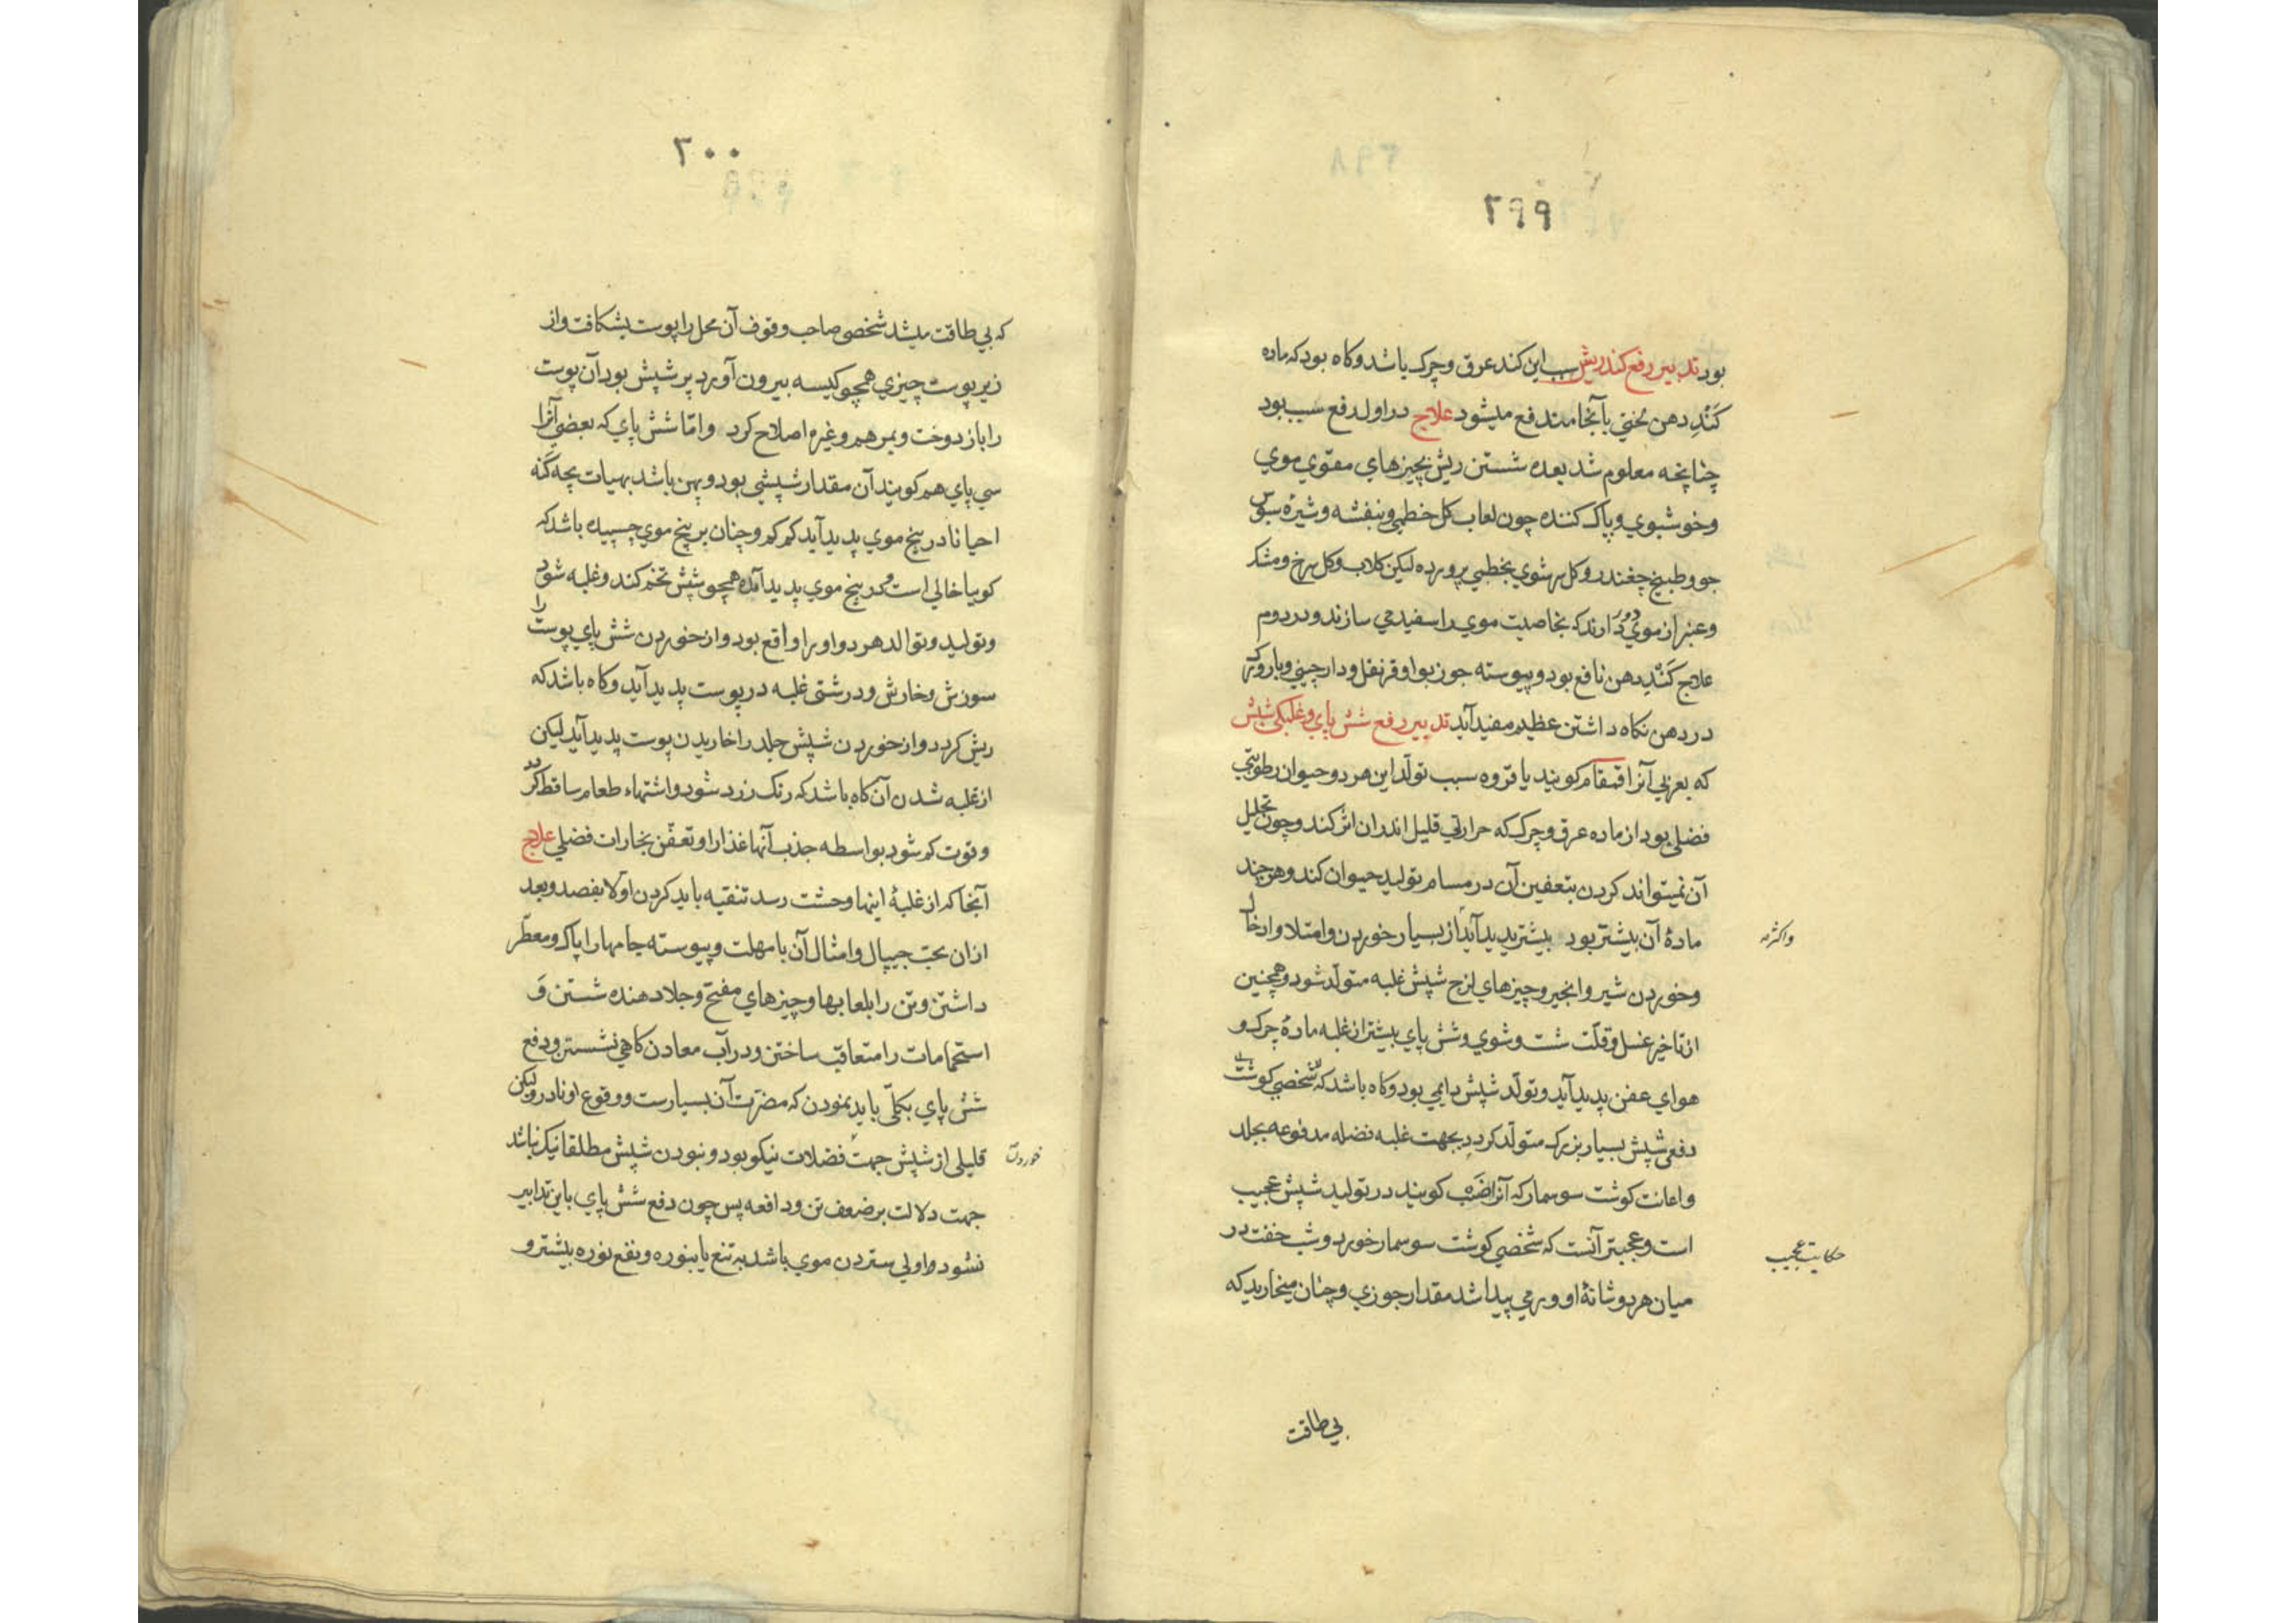 ۲۹۹
بود تدبیر رفع کند ریش سبب این کند عرق و چرک باشد و کاه بود که ماده
کَندِ دهن بآنجا مندفع میشود علاج در اول رفع سبب بود
چنانچه معلوم شد بعده شستن ریش بچیزهای مقوی موی
و خوشبوی و پاک کننده چون لعاب کل خطمی و بنفشه و شیرهٔ سبوس
جو و طبیخ چغندر و کل سرشوی بخطمی پرورده لیکن کلاب و کل سرخ و مشک
و عنبر از موی دور دارند که بخاصیت موی را سفید می سازند و در دوم
علاج کَندِ دهن نافع بود و پیوسته جوز بوا و قرنفل و دارچینی
در دهن نکاه داشتن عظیم مفید آید تدبیر رفع شش پای و غلبکی شپش
که بعربی آنرا قمقام کویند یا قروه سبب تولد این هر دو حیوان رطوبتی
فضلی بود از ماده عرق و چرک که حرارتی قلیل اندران اثر کند و چون تحلیل
آن نمیتواند کردن بتعفین آن در مسام تولید حیوان کند و هر چند
مادهٔ آن بیشتر بود بیشتر پدید آید از بسیار خوردن و امتلا و ادخال
واکثر
و خوردن شیر و انجیر و چیزهای لزج شپش غلبه متولد شود و همچنین
از تاخیر غسل و قلّت شست و شوی و شش پای بیشتر از غلبه مادهٔ چرک و
هوای عفن پدید آید و تولد شپش دایمی بود و کاه باشد که شخصی کوشت
دفعی شپش بسیار بزرک متولد کردد بجهت غلبه فضله مدفوعه بجلد
و اعانت کوشت سوسمار که آنرا ضَب کویند در تولید شپش عجیب
است و عجبتر آنست که شخصی کوشت سوسمار خورد و شب خفت در
حکایت عجیب
میان هر دو شانهٔ او ورمی پیدا شد مقدار جوزی و چنان میخارید که
بی طاقت
۳۰۰
که بی طاقت میشد شخصی صاحب وقوف آن محل را پوست بشکافت و از
زیر پوست چیزی همچو کیسه بیرون آورد پر شپش بود آن پوست
را باز دوخت و بمرهم و غیره اصلاح کرد و امّا شش پای که بعضی آنرا
سی پای هم کویند آن مقدار شپشی بود و پهن باشد بهیات بچه کنه
احیانا در بیخ موی پدید آید کم کم و چنان بر بیخ موی چسپیده باشد که
کوییا خالی است و در بیخ موی پدید آمده همچو شپش تخم کند و غلبه شود
و تولید و توالد هر دو او را واقع بود و از خوردن شش پای پوست را
سوزش و خارش و درشتی غلبه در پوست پدید آید و کاه باشد که
ریش کردد و از خوردن شپش جلد را خاریدن پوست پدید آید لیکن
از غلبه شدن آن کاه باشد که رنک زرد شود و اشتهاء طعام ساقط کردد
و قوت کم شود بواسطه جذب آنها غذا را و تعفّن بخارات فضلی علاج
آنجا که از غلبهٔ اینها وحشت رسد تنقیه باید کردن اوّلا بفصد و بعد
ازان بحبّ جیپال و امثال آن با مهلت و پیوسته جامها را پاک و معطّر
داشتن و تن را بلعابها و چیزهای مفتّح و جلا دهنده شستن و
استحمامات را متعاقب ساختن و در آب معادن کاهی نشستن و دفع
شش پای بکلّی باید نمودن که مضرّت آن بسیارست و وقوع او نادر و لیکن
قلیلی از شپش جهت فضلات نیکو بود و نبودن شپش مطلقا نیک نباشد
خوردن
جهت دلالت بر ضعف تن و دافعه پس چون دفع شش پای باین تدابیر
نشود اولی ستردن موی باشد به تیغ یا بنوره و نفع نوره بیشتر و